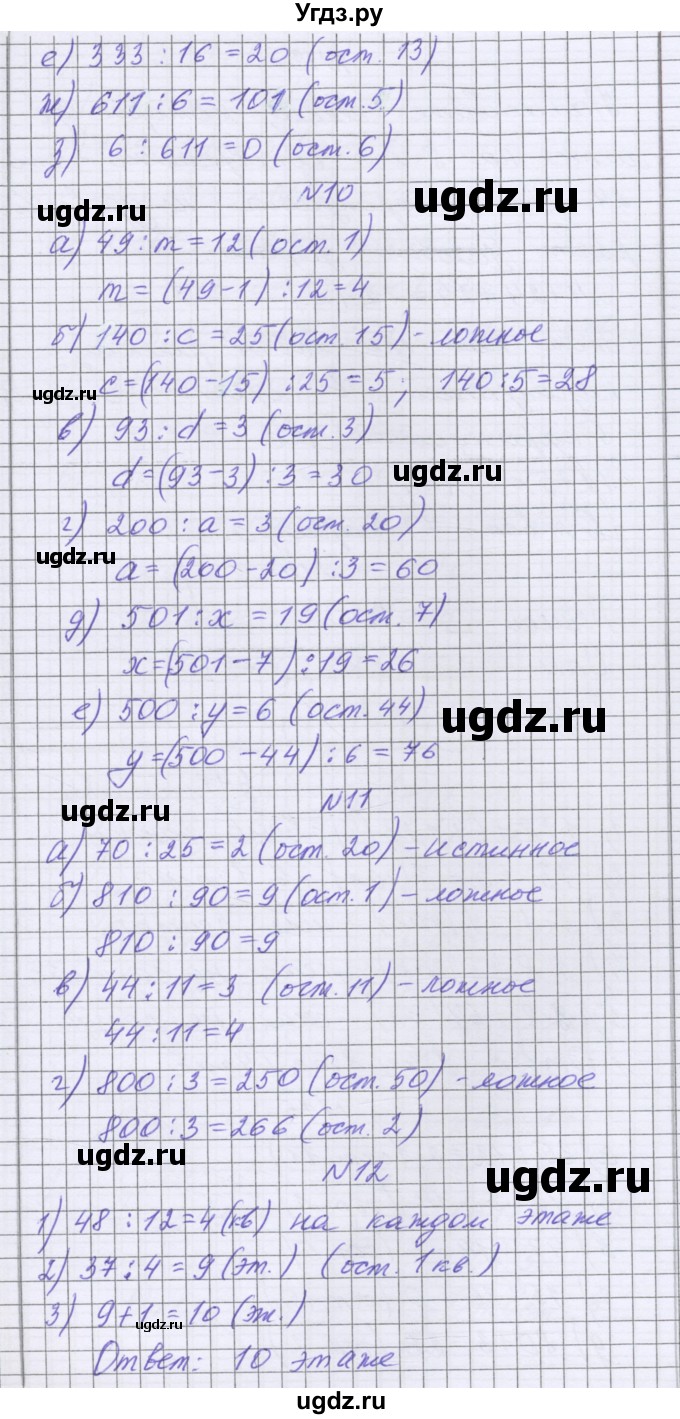 Угдз.ру
е) 333 : 16 = 20 (ост. 13)
ж) 611 : 6 = 101 (ост. 5)
з) 6 : 611 = 0 (ост. 6)
N10
ugdz.ru
ugdz.ru
а) 49 : m = 12 (ост. 1)
m = (49-1) : 12 = 4
б) 140 : c = 25 (ост. 15) - ложное
ugdz.ru
c = (140-15) : 25 = 5; 140 : 5 = 28
в) 93 : d = 3 (ост. 3)
d = (93-3) : 3 = 30
ugdz.ru
г) 200 : a = 3 (ост. 20)
ugdz.ru
a = (200-20) : 3 = 60
д) 501 : x = 19 (ост. 7)
x = (501-7) : 19 = 26
е) 500 : y = 6 (ост. 44)
ugdz.ru
y = (500-44) : 6 = 76
N11
ugdz.ru
а) 70 : 25 = 2 (ост. 20) - истинное
б) 810 : 90 = 9 (ост. 1) - ложное
810 : 90 = 9
в) 44 : 11 = 3 (ост. 11) - ложное
44 : 11 = 4
г) 800 : 3 = 250 (ост. 50) - ложное
800 : 3 = 266 (ост. 2)
ugdz.ru
N12
ugdz.ru
1) 48 : 12 = 4 (кв) на каждом этаже
2) 37 : 4 = 9 (эт.) (ост. 1 кв.)
3) 9+1 = 10 (эт.)
ugdz.ru
Ответ: 10 этаже
ugdz.ru